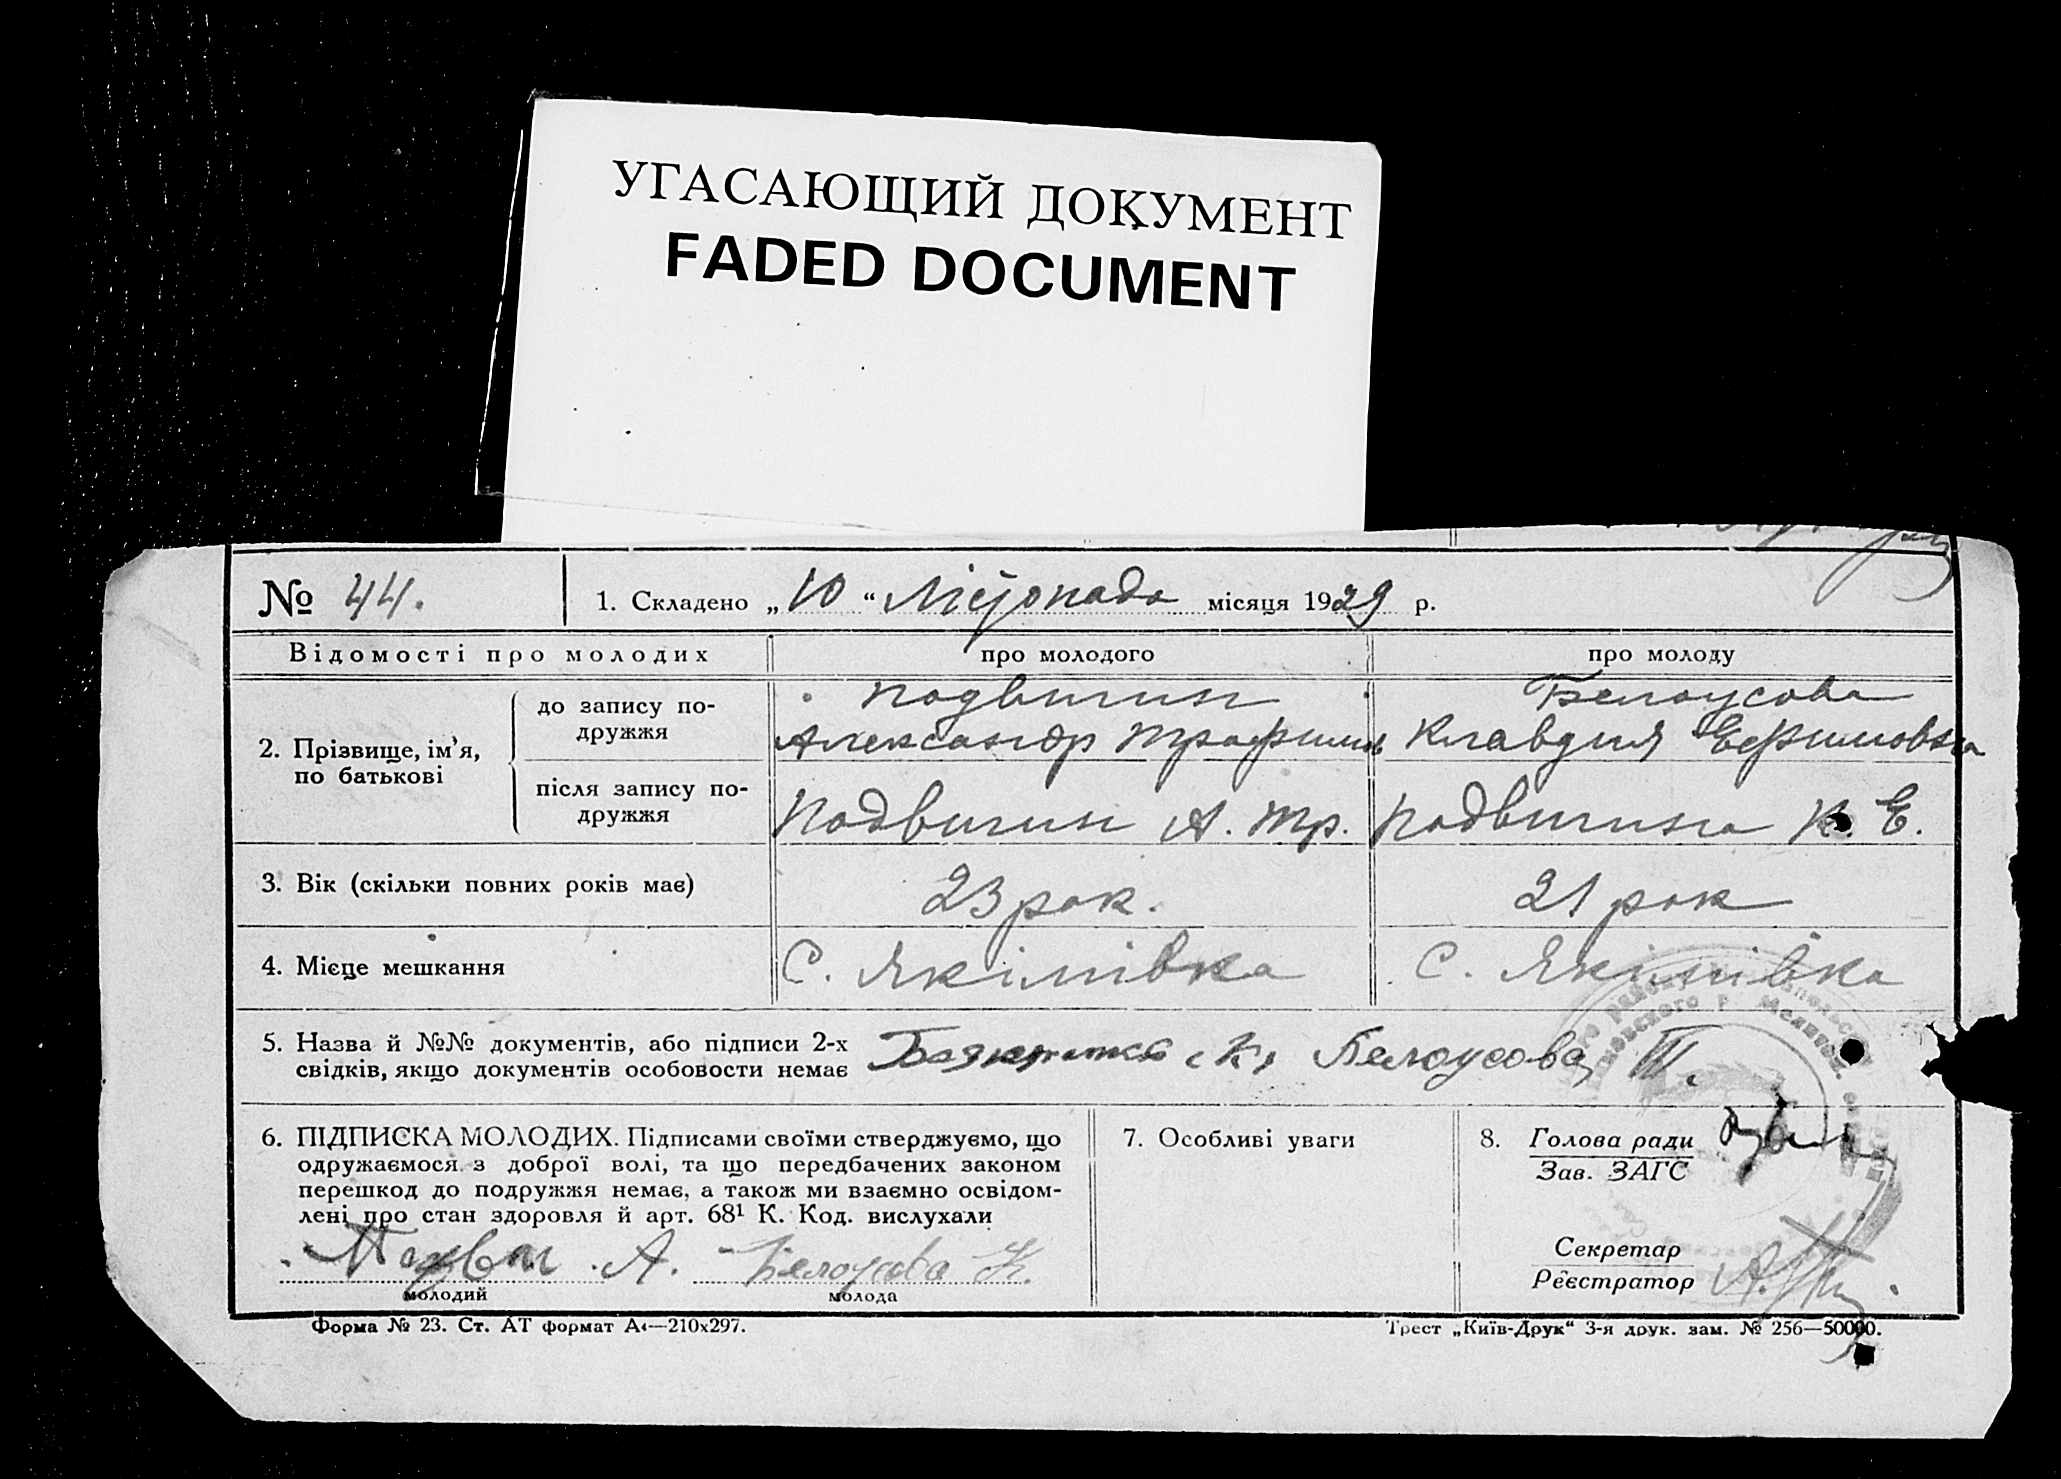 УГАСАЮЩИЙ ДОКУМЕНТ
FADED DOCUMENT
№ 44. 1. Складено „10“ Лістопада місяця 1929 р.
Відомості про молодих про молодого про молоду
2. Прізвище, ім’я, по батькові
до запису по-
дружжя
Подвигин
Александр Трафимов
Белоусова
Клавдия Ефимовна
після запису по-
дружжя
Подвигин А. Тр. Подвигина К. Е.
3. Вік (скільки повних років має) 23 рок. 21 рок
4. Місце мешкання С. Якімівка С. Якімівка
5. Назва й №№ документів, або підписи 2-х
свідків, якщо документів особовости немає
К, Белоусова Т.
6. ПІДПИСКА МОЛОДИХ. Підписами своїми стверджуємо, що
одружаємося з доброї волі, та що передбачених законом
перешкод до подружжя немає, а також ми взаємно освідом-
лені про стан здоров'я й арт. 68¹ К. Код. вислухали
А. Белоусова К.
молодий молода
7. Особливі уваги
8. Голова ради
Зав. ЗАГС
Секретар
Реєстратор
Форма № 23. Ст. АТ формат А4—210х297.
Трест „Київ-Друк“ 3-я друк. зам. № 256—50000.